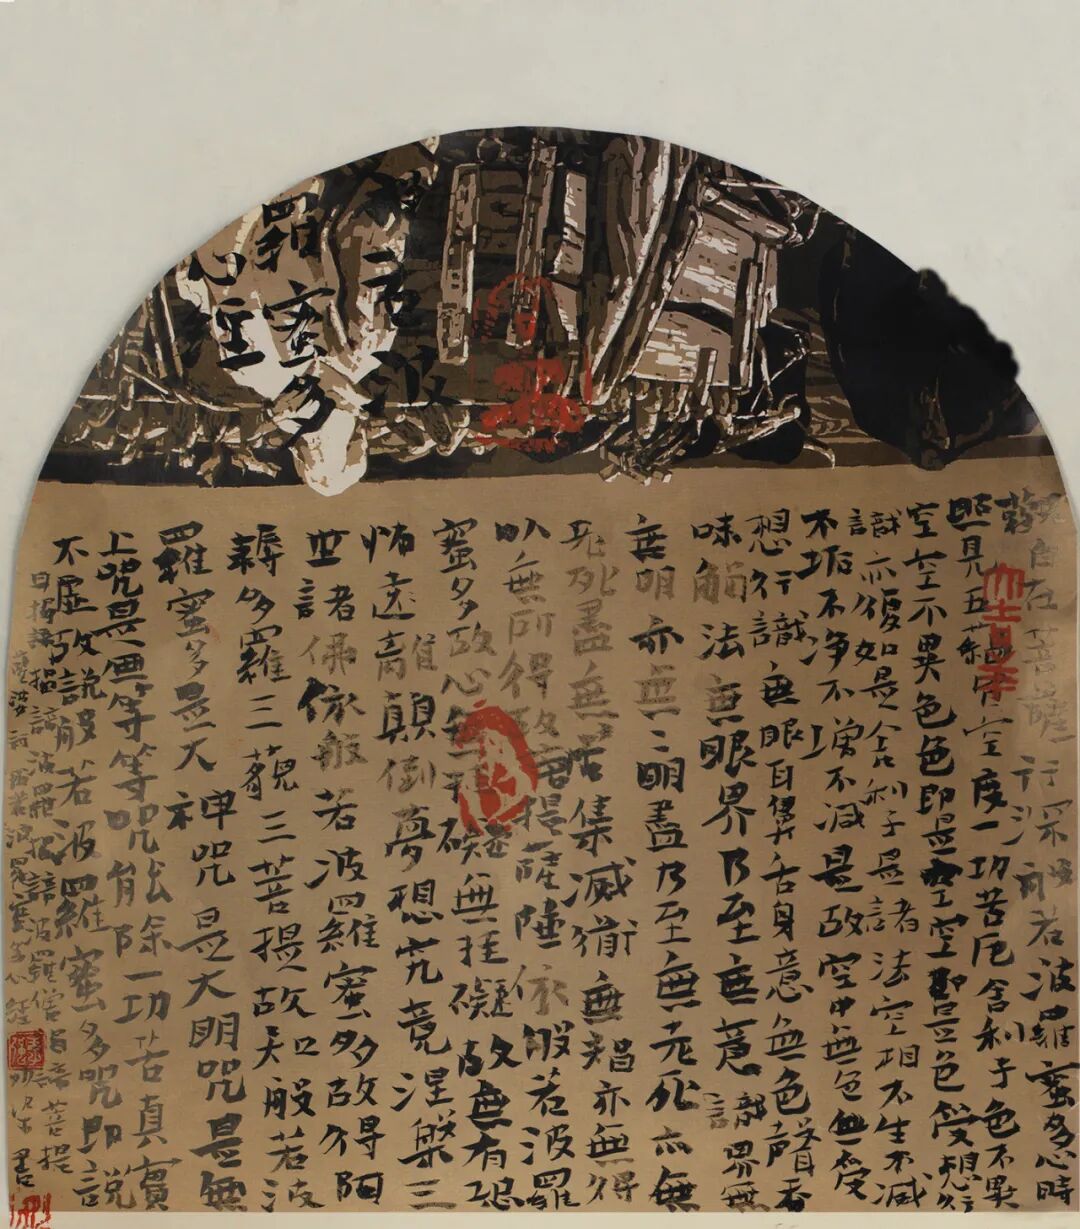 般若波
羅蜜多
心經
觀自在菩薩行深般若波羅蜜多心時
照見五蘊皆空度一切苦厄舍利子色不異
空空不異色色即是空空即是色受想行
識亦復如是舍利子是諸法空相不生不滅
不垢不净不增不減是故空中無色無受
想行識無眼耳鼻舌身意無色聲香
味觸法無眼界乃至無意識界無
無明亦無〻明盡乃至無老死亦無
老死盡無苦集滅道無智亦無得
以無所得故菩提薩埵依般若波羅
蜜多故心無罣礙無罣礙故無有恐
怖遠離顛倒夢想究竟涅槃三
世諸佛依般若波羅蜜多故得阿
耨多羅三藐三菩提故知般若波
羅蜜多是大神咒是大明咒是無
上咒是無等等咒能除一切苦真實
不虛故說般若波羅蜜多咒即說
曰揭諦揭諦波羅揭諦波羅僧揭諦菩提
薩婆訶般若波羅蜜多心經
書